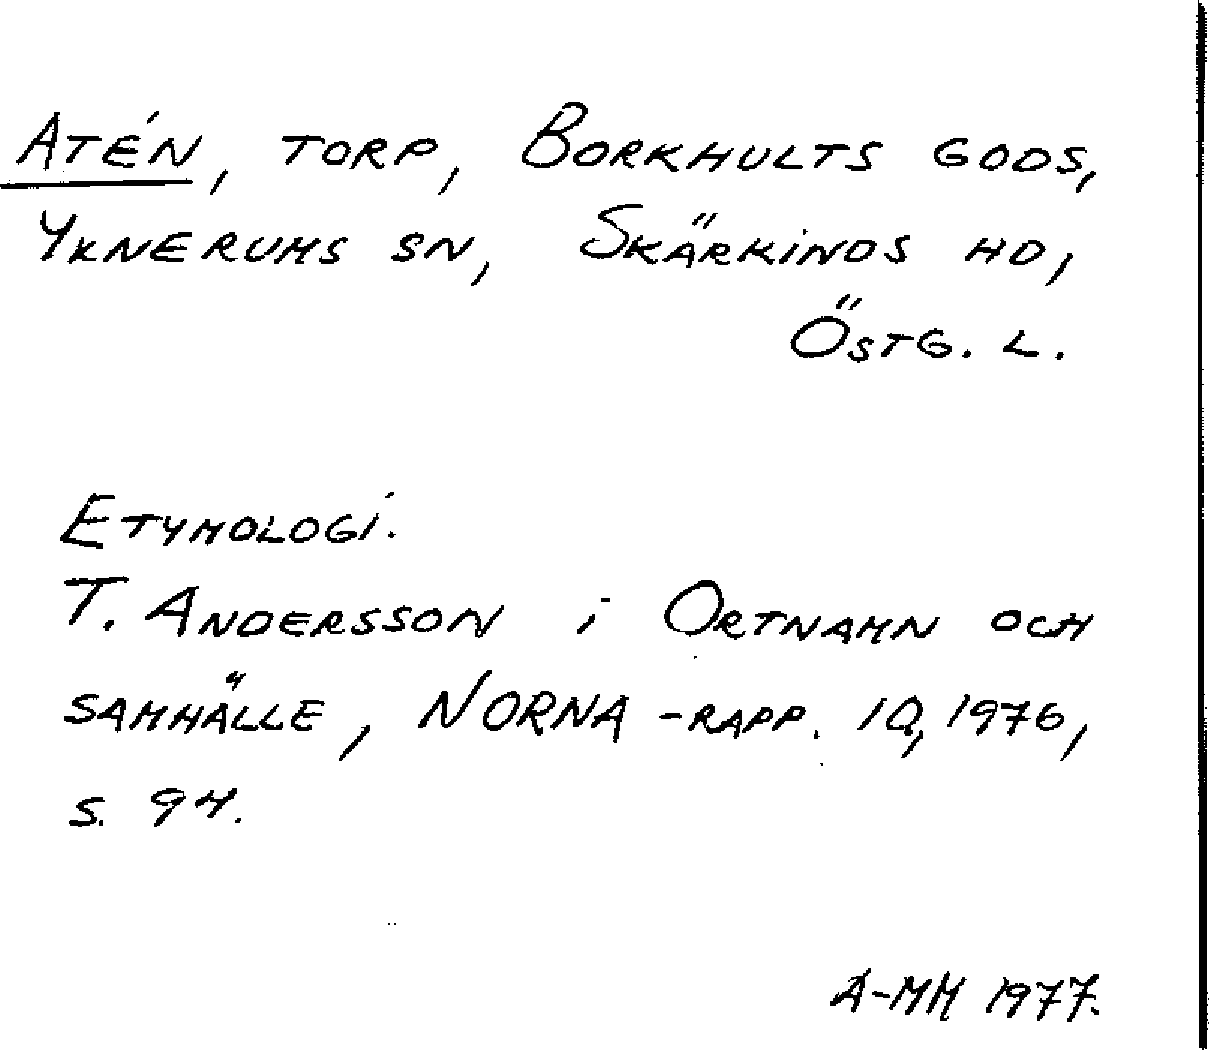 ATÉN, TORP, BORKHULTS GODS,
YKNERUMS SN, SKÄRKINDS HD,
ÖSTG. L.
ETYMOLOGI.
T. ANDERSSON i ORTNAMN OCH
SAMHÄLLE, NORNA-RAPP. 10, 1976,
S. 94.
A-MM 1977.